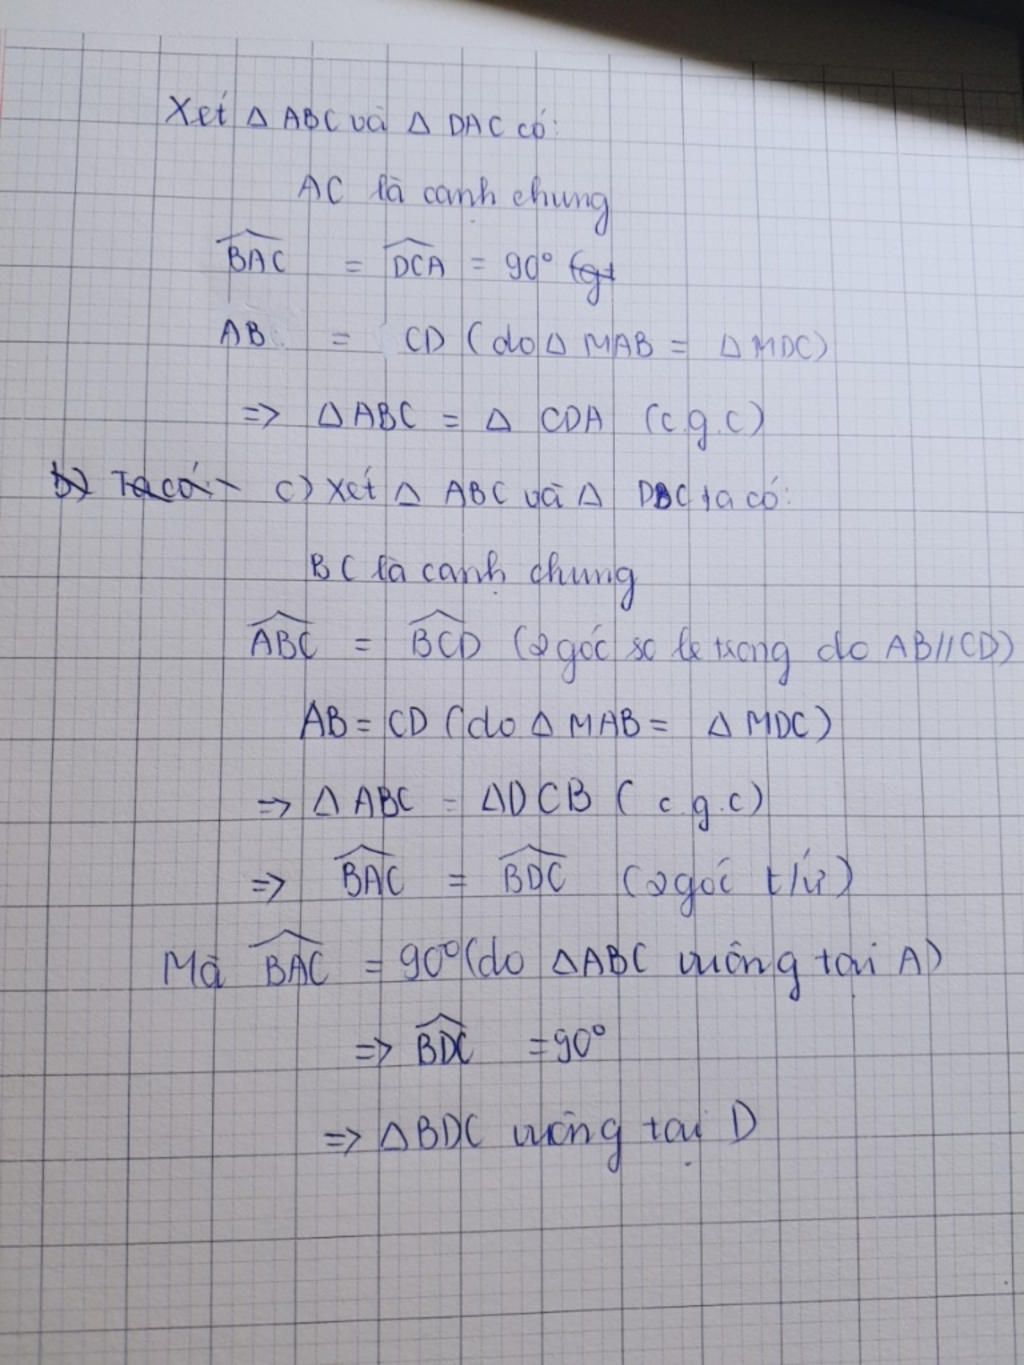 Xét Δ ABC và Δ DAC có:
AC là cạnh chung
BAC = DCA = 90° (gt
AB = CD (do Δ MAB = Δ MDC)
=> Δ ABC = Δ CDA (c.g.c)
b) Ta có c) Xét Δ ABC và Δ DBC ta có:
BC là cạnh chung
ABC = BCD (2 góc so le trong do AB//CD)
AB = CD (do Δ MAB = Δ MDC)
=> Δ ABC = Δ DCB (c.g.c)
=> BAC = BDC (2 góc t/ứ)
Mà BAC = 90° (do Δ ABC vuông tại A)
=> BDC = 90°
=> Δ BDC vuông tại D